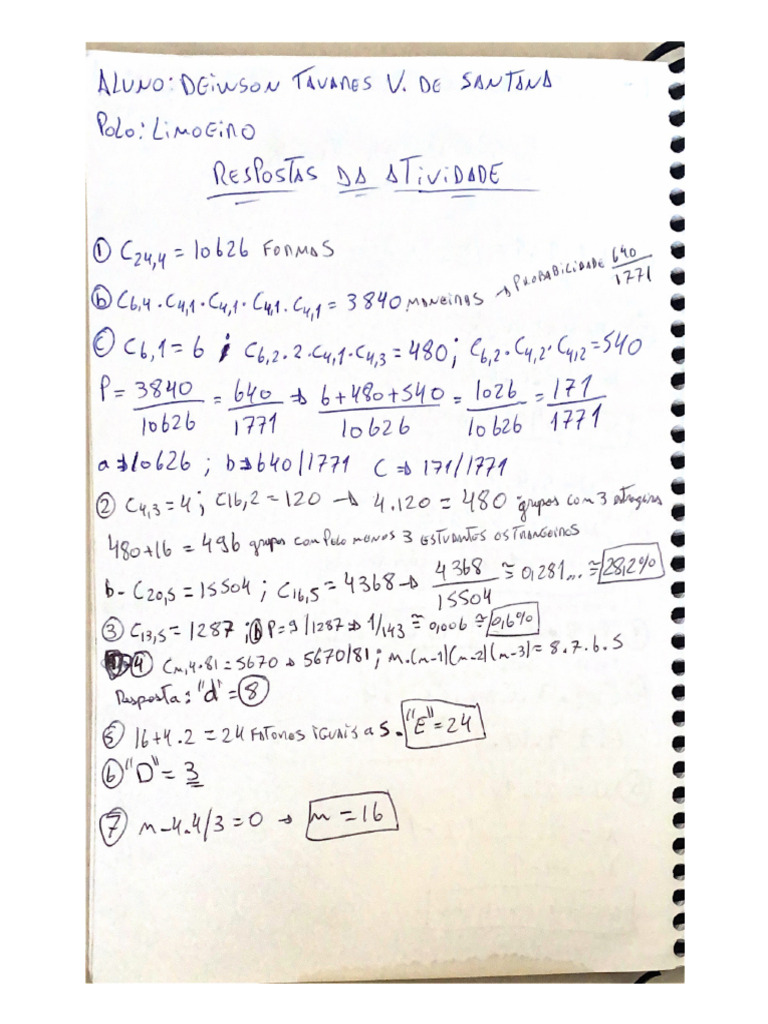 ALUNO: DEIWSON TAVARES V. DE SANTANA
POLO: LIMOEIRO
RESPOSTAS DA ATIVIDADE
① C24,4 = 10626 FORMAS
ⓑ C6,4 . C4,1 . C4,1 . C4,1 . C4,1 = 3840 MANEIRAS → PROBABILIDADE 640/1771
ⓒ C6,1 = 6 ; C6,2 . 2 . C4,1 . C4,3 = 480 ; C6,2 . C4,2 . C4,2 = 540
P = 3840/10626 = 640/1771 ⇒ 6+480+540/10626 = 1026/10626 = 171/1771
a ⇒ 10626 ; b ⇒ 640/1771 C ⇒ 171/1771
② C4,3 = 4 ; C16,2 = 120 → 4.120 = 480 grupos com 3
480+16 = 496 grupos com Pelo menos 3 ESTUDANTES ESTRANGEIROS
b- C20,5 = 15504 ; C16,5 = 4368 → 4368/15504 ≅ 0,281... ≅ 28,2%
③ C13,5 = 1287 ; ⓑ P = 9/1287 ⇒ 1/143 ≅ 0,006 ≅ 0,6%
④ Cn,4 . 81 = 5670 → 5670/81 ; n.(n-1)(n-2)(n-3) = 8.7.6.5
Resposta: "d" = 8
⑤ 16+4.2 = 24 FATORES IGUAIS a 5. "E" = 24
⑥ "D" = 3
⑦ n-4.4/3 = 0 → n = 16